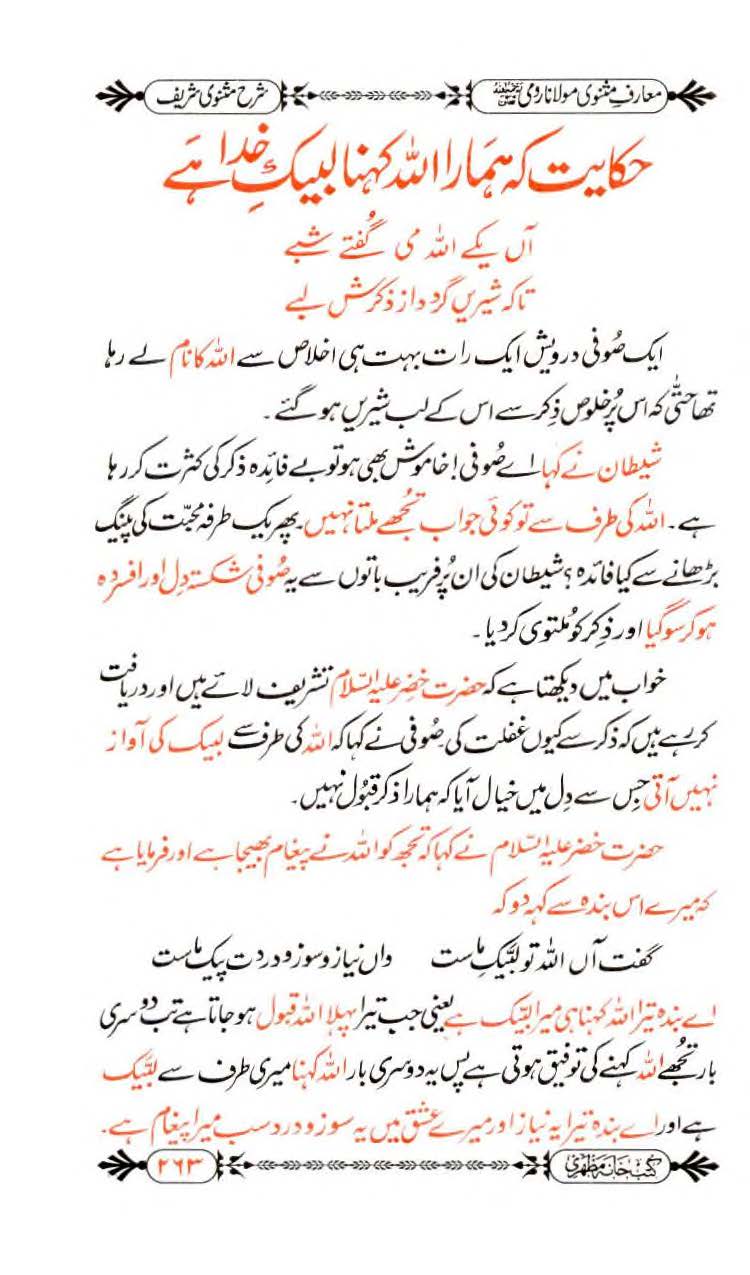 معارفِ مثنوی مولانا رومی رحمۃ اللہ علیہ
شرح مثنوی شریف
حکایت کہ ہمارا اللہ کہنا لبیکِ خدا ہے
آں یکے اللہ می گفتے شبے
تاکہ شیریں گردد از ذکرش لبے
ایک صُوفی درویش ایک رات بہت ہی اخلاص سے اللہ کا نام لے رہا
تھا حتّٰی کہ اس پُرخلوص ذِکر سے اس کے لب شیریں ہو گئے ۔
شیطان نے کہا اے صُوفی! خاموش بھی ہو تو بے فائدہ ذکر کی کثرت کر رہا
ہے ۔ اللہ کی طرف سے تو کوئی جواب تجھے ملتا نہیں ۔ پھر یک طرفہ محبّت کی پینگ
بڑھانے سے کیا فائدہ ؟ شیطان کی ان پُرفریب باتوں سے یہ صُوفی شکستہ دِل اور افسردہ
ہو کر سو گیا اور ذِکر کو مُلتوی کر دیا ۔
خواب میں دیکھتا ہے کہ حضرت خضِر علیہ السّلام تشریف لائے ہیں اور دریافت
کر رہے ہیں کہ ذکر سے کیوں غفلت کی صُوفی نے کہا کہ اللہ کی طرف سے لبیک کی آواز
نہیں آتی جِس سے دِل میں خیال آیا کہ ہمارا ذکر قبُول نہیں ۔
حضرت خضر علیہ السّلام نے کہا کہ تجھ کو اللہ نے پیغام بھیجا ہے اور فرمایا ہے
کہ میرے اس بندہ سے کہہ دو کہ
گفت آں اللہ تو لبّیکِ ماست واں نیاز و سوز و دردت پیک ماست
اے بندہ تیرا اللہ کہنا ہی میرا لبّیک ہے یعنی جب تیرا پہلا اللہ قبول ہو جاتا ہے تب دوسری
بار تجھے اللہ کہنے کی توفیق ہوتی ہے پس یہ دوسری بار اللہ کہنا میری طرف سے لبّیک
ہے اور اے بندہ تیرا یہ نیاز اور میرے عشق میں یہ سوز و درد سب میرا پیغام ہے ۔
کتب خانہ مظہری
۲۶۳